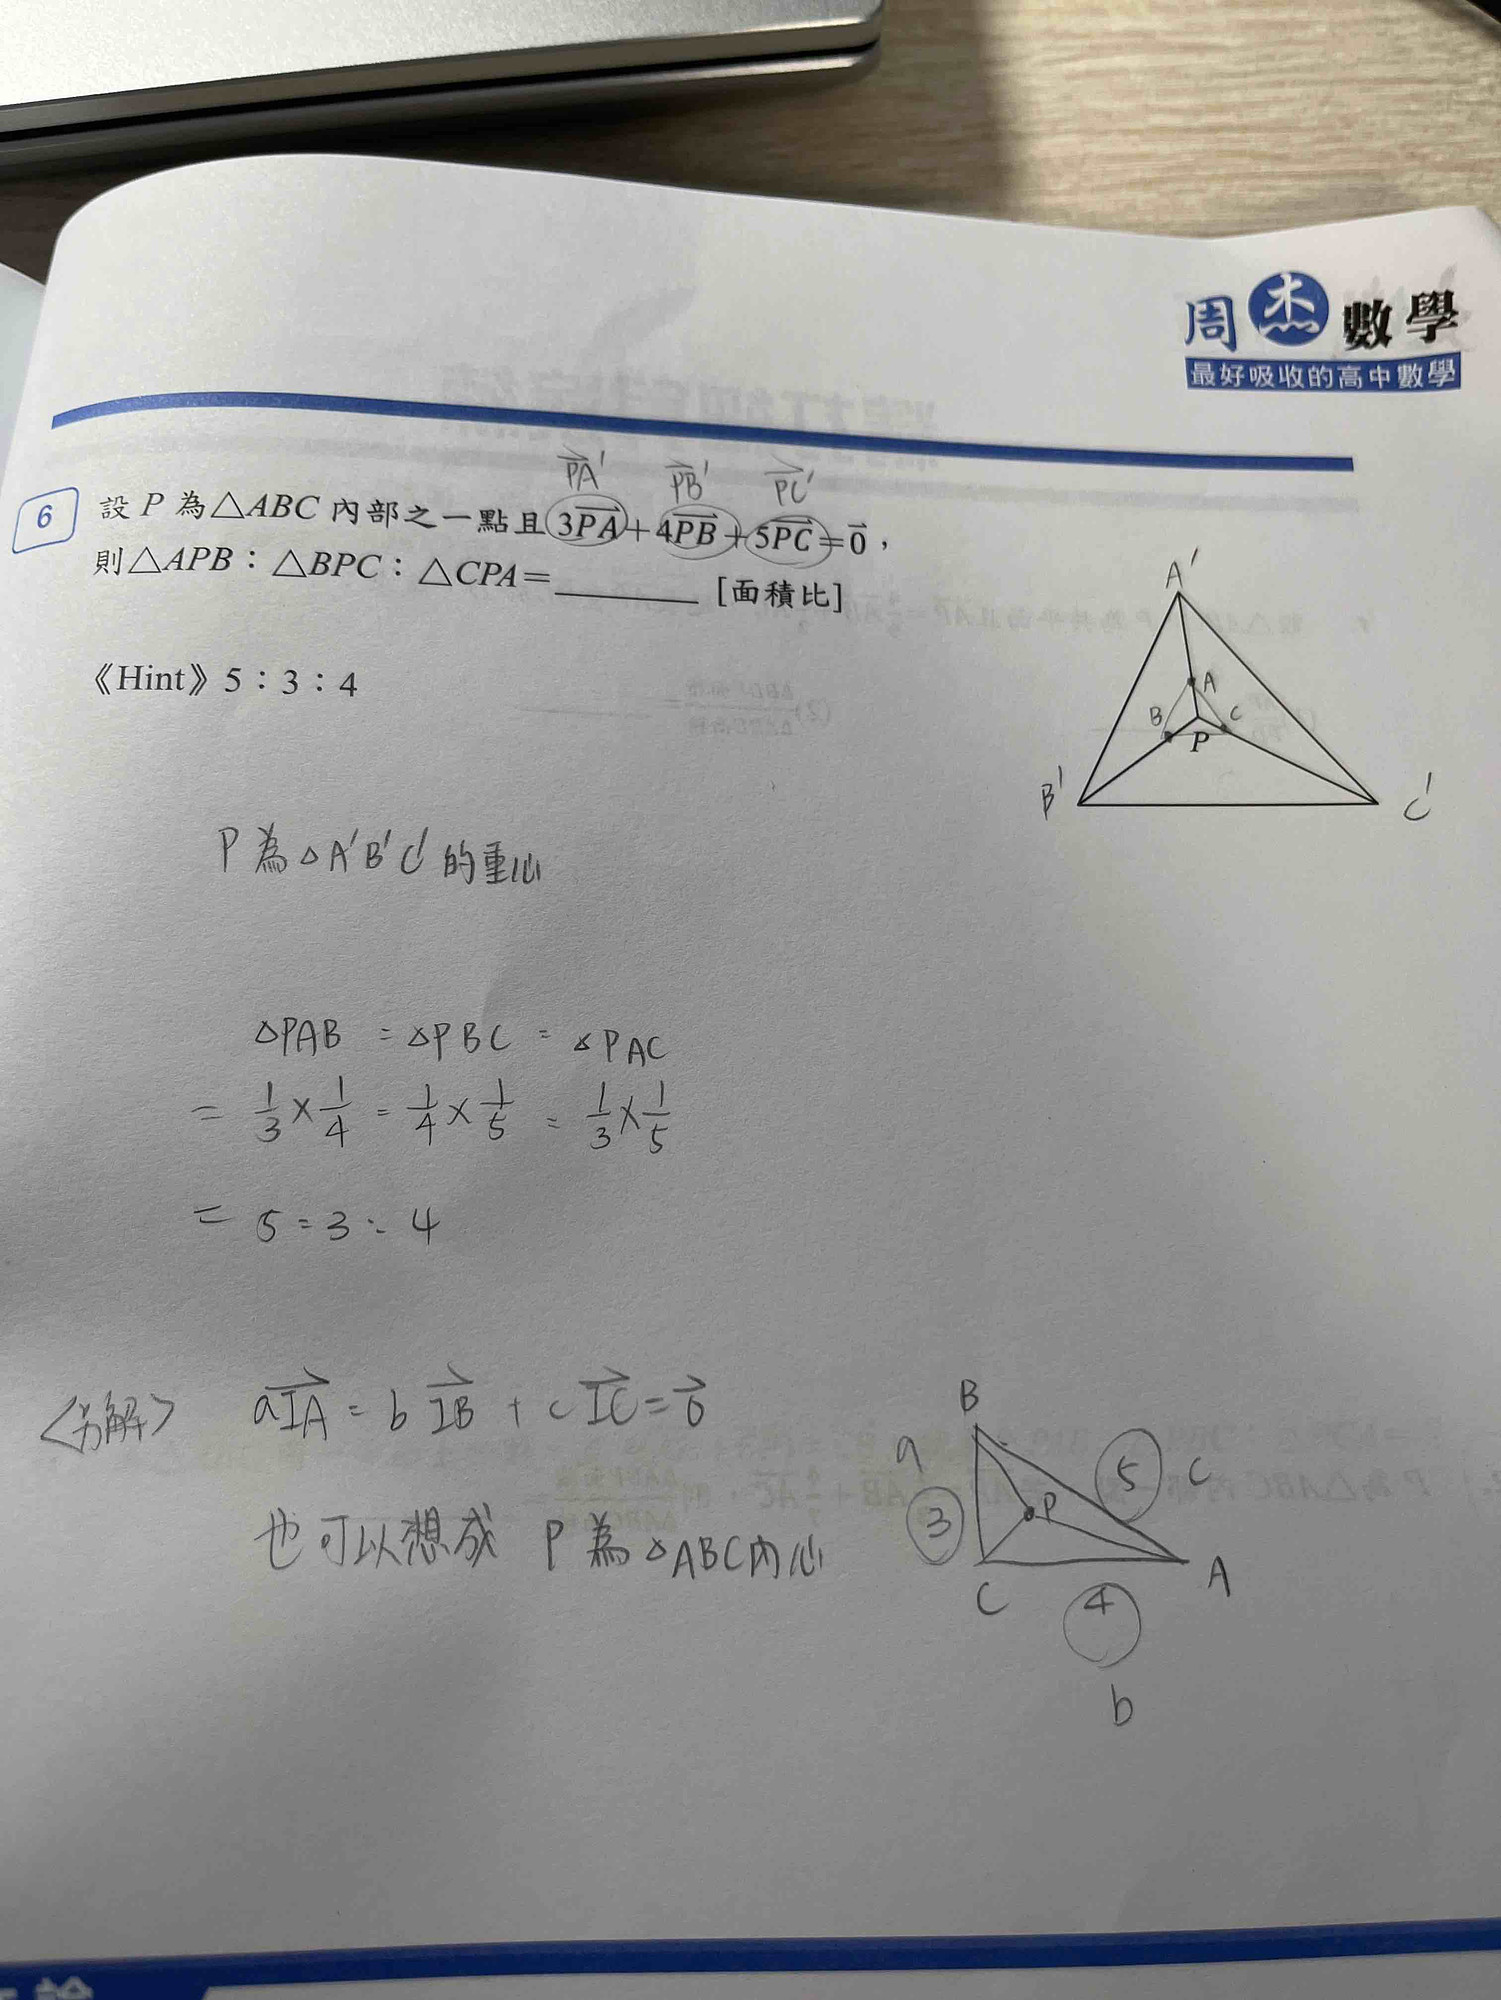 周杰數學
最好吸收的高中數學
PA' PB' PC'
6 設 P 為△ABC 內部之一點且 3PA+4PB+5PC=0，
則△APB：△BPC：△CPA=______ [面積比]
A'
A
B C
P
B' C'
《Hint》5：3：4
P 為 △A'B'C' 的重心
△PAB : △PBC : △PAC
= 1/3 × 1/4 : 1/4 × 1/5 : 1/3 × 1/5
= 5 : 3 : 4
<另解> aIA = b IB + c IC = 0
也可以想成 P 為 △ABC內心
B
a 5 c
3 P
C 4 A
b